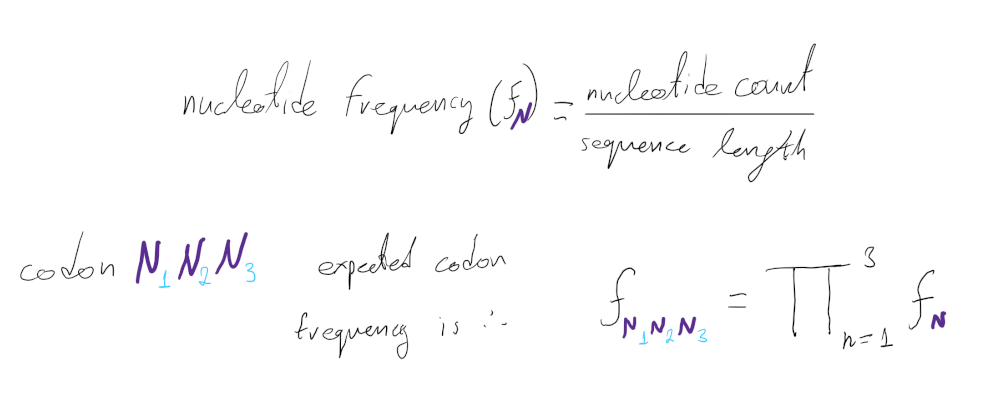 nucleotide frequency (f_N) = nucleotide count / sequence length
codon N_1 N_2 N_3 expected codon
frequency is ∴ f_{N_1 N_2 N_3} = ∏_{n=1}^{3} f_N